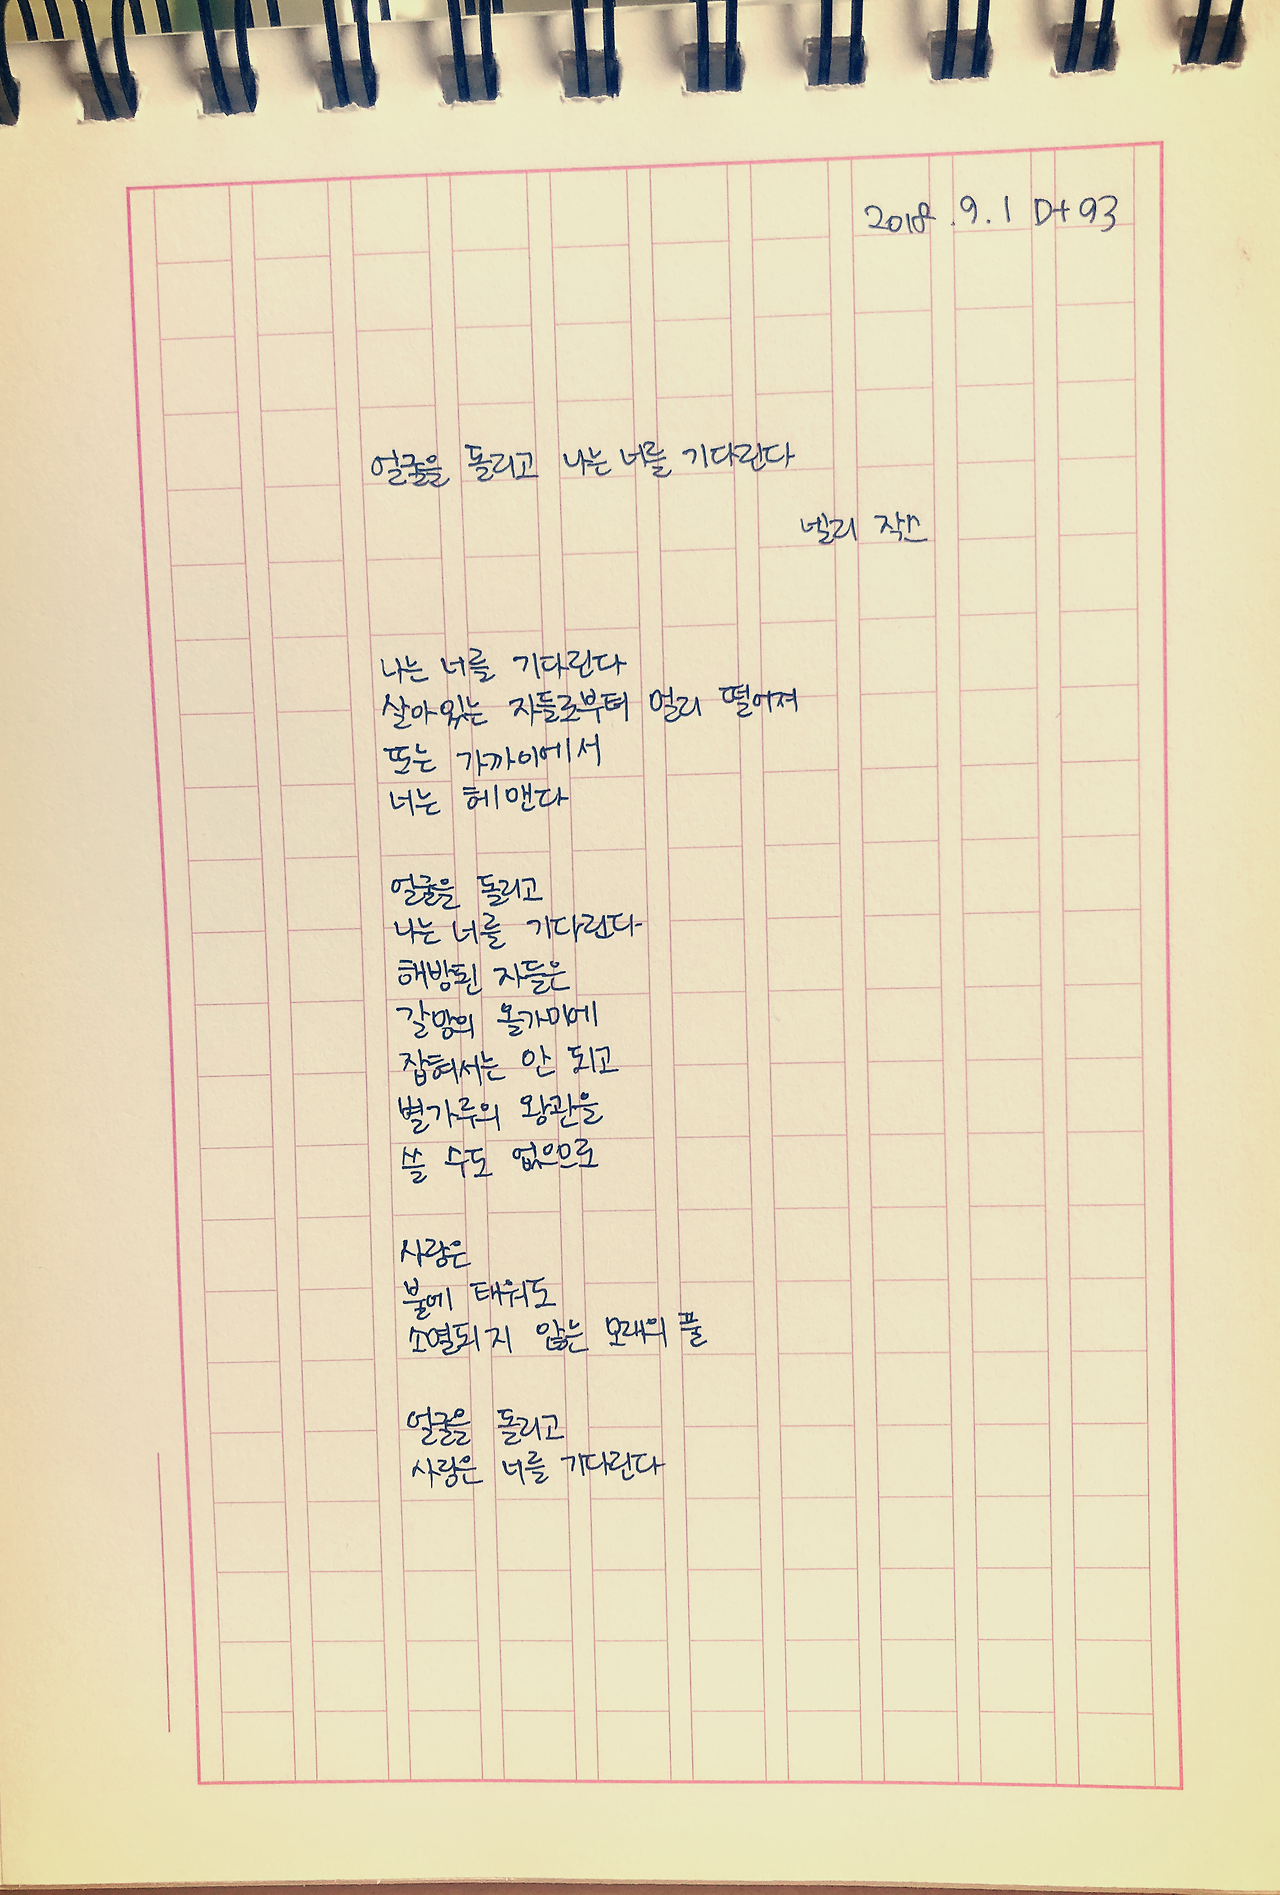 2018.9.1 D+93
얼굴을 돌리고 나는 너를 기다린다
넬리 작스
나는 너를 기다린다
살아있는 자들로부터 멀리 떨어져
또는 가까이에서
너는 헤맨다
얼굴을 돌리고
나는 너를 기다린다
해방된 자들은
갈망의 올가미에
잡혀서는 안 되고
별가루의 왕관을
쓸 수도 없으므로
사랑은
불에 태워도
소멸되지 않는 모래의 풀
얼굴을 돌리고
사랑은 너를 기다린다